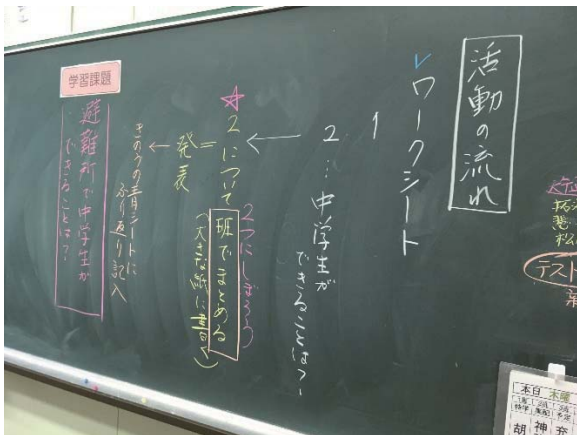 活動の流れ
✓ワークシート
1
2…中学生が
できることは?
2つにしぼろう
☆2について班でまとめる
(大きな紙に書く)
=発表
きのうの三月シートに
ふり返り記入
学習課題
避難所で中学生が
できることは?
テスト
本日 木曜